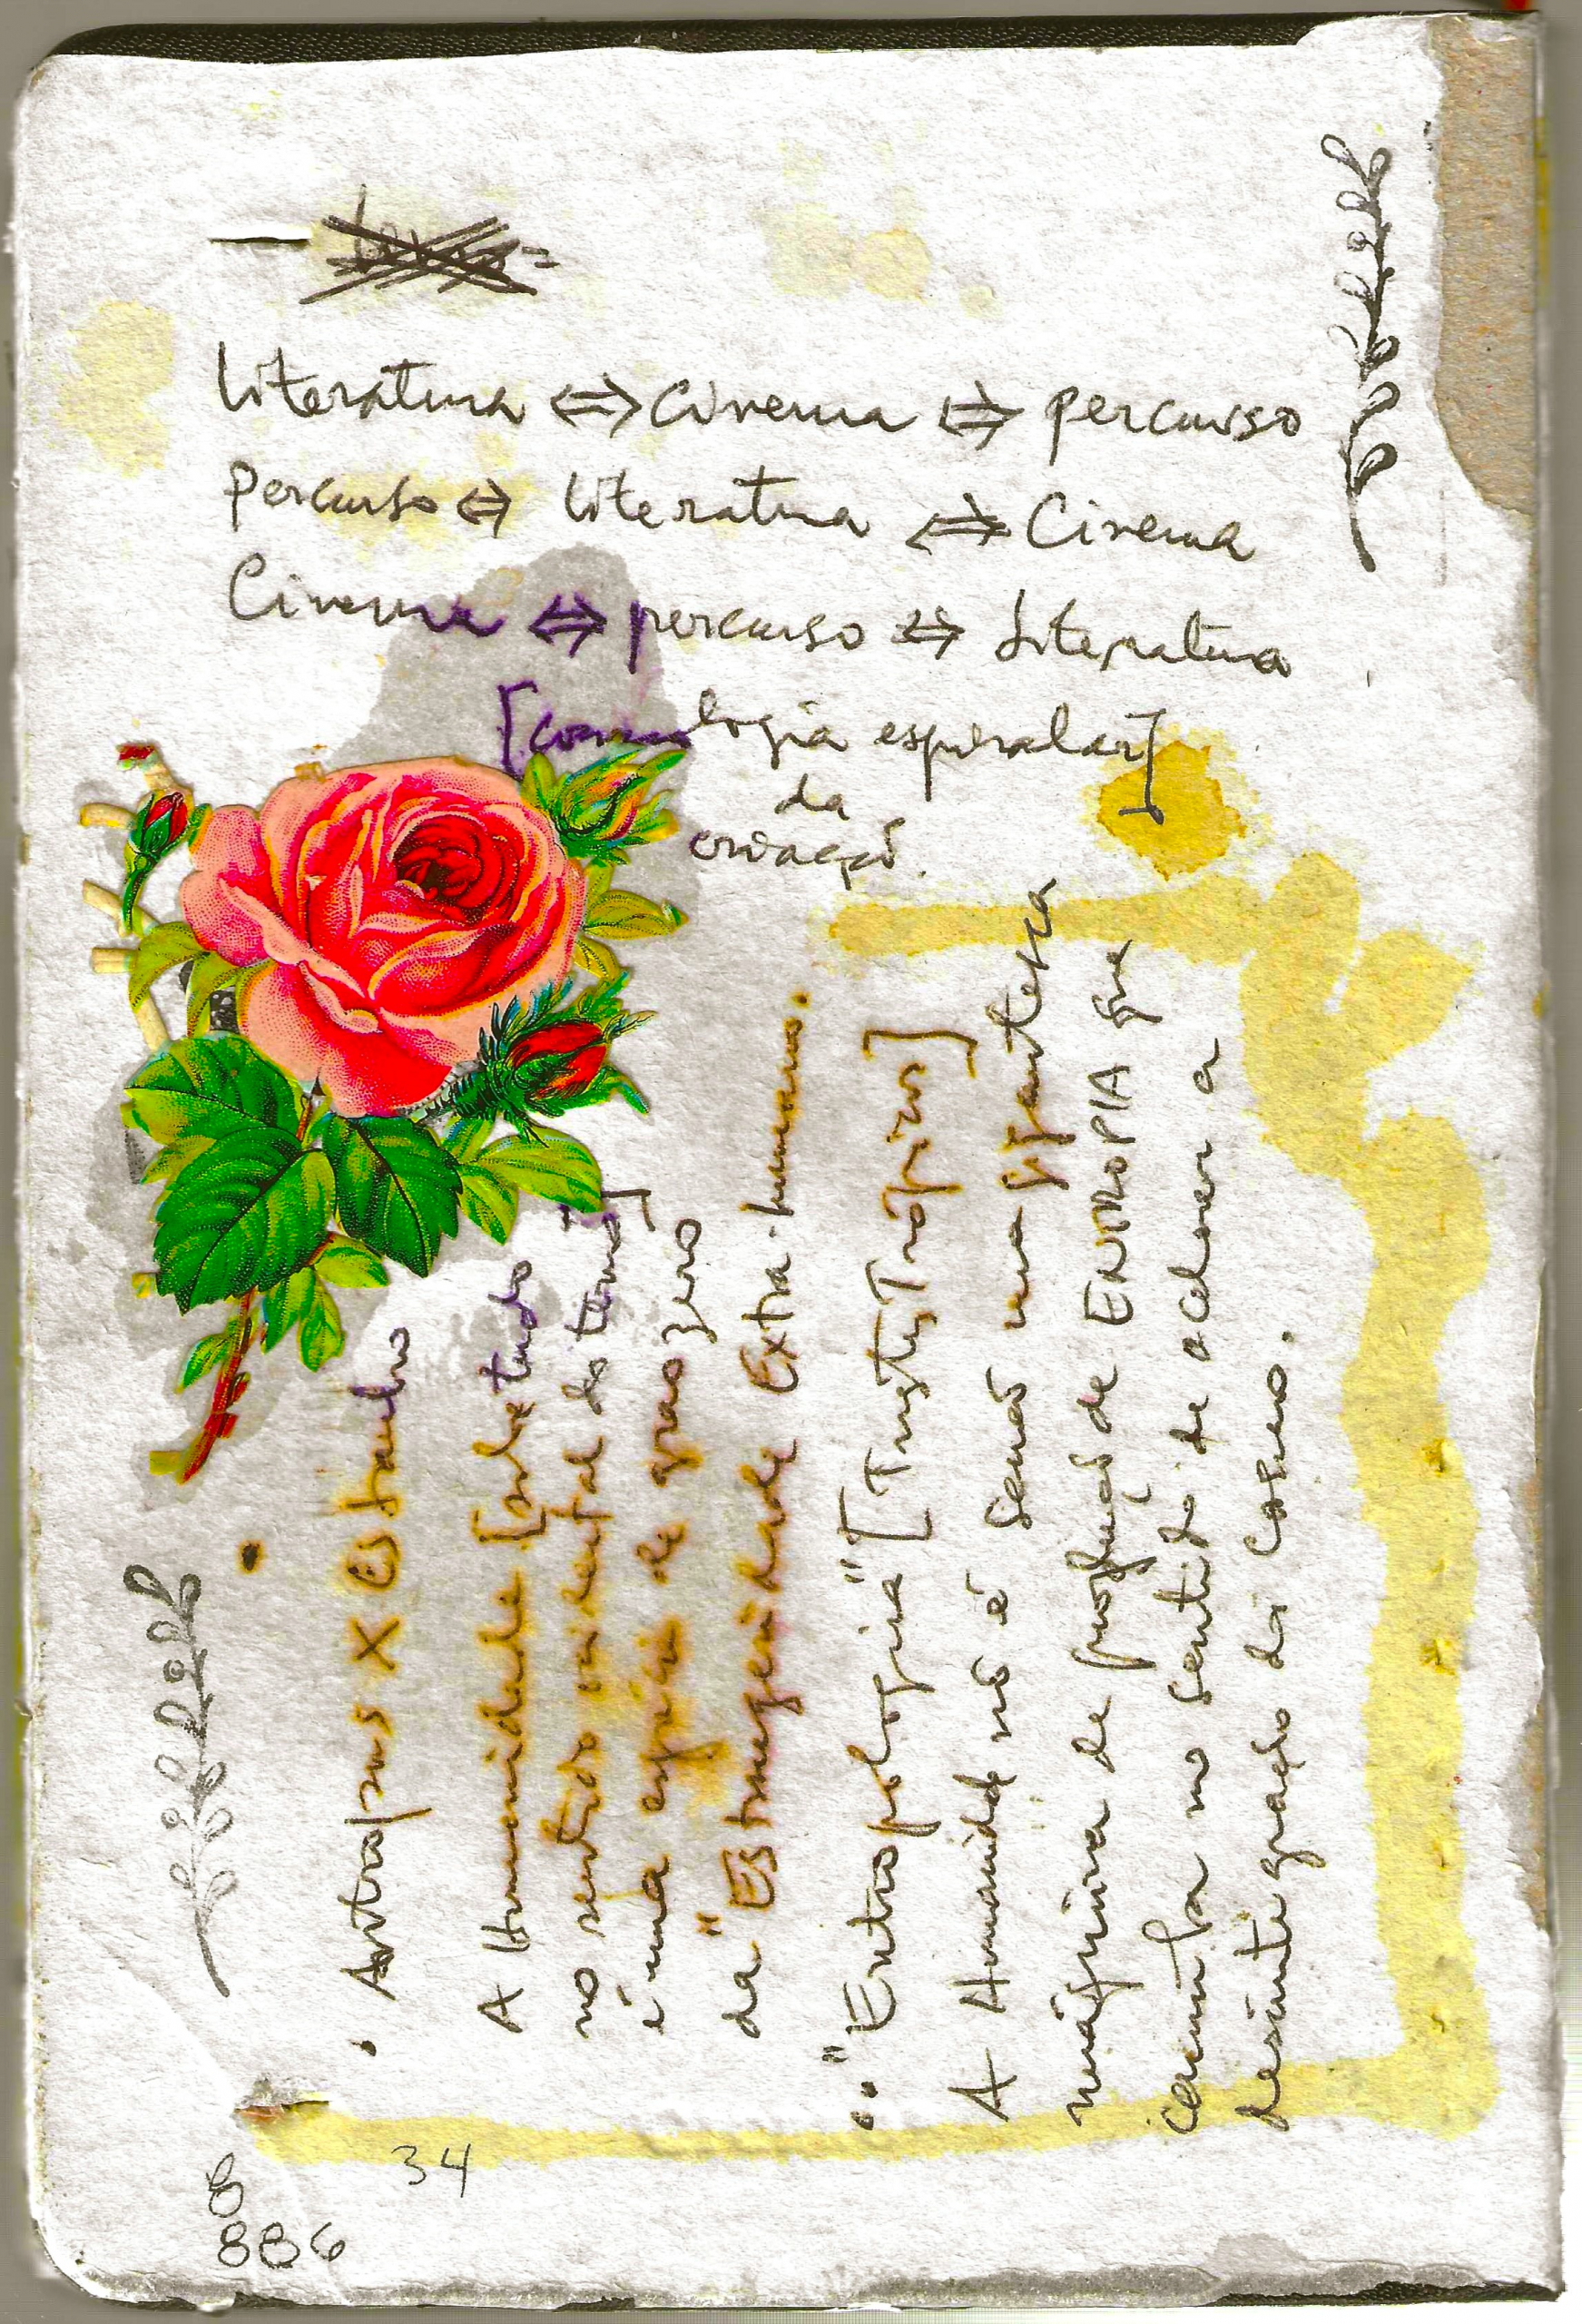 Literatura ⇔ Cinema ⇔ percurso
Percurso ⇔ literatura ⇔ Cinema
Cinema ⇔ percurso ⇔ Literatura
[cosmologia espiralar]
da
criação.
• Antropos X Estranho
A Humanidade [sobretudo
no sentido ocidental do termo]
é uma espécie de grao zero
da "Estrangeiridade Extra-humano.
•• "Entropologia" [Tristes Trópicos]
A Humanidade não é senão uma gigantesca
máquina de produção de ENTROPIA que
caminha no sentido de acelerar a
desintegração do Cosmo.
34
8
886